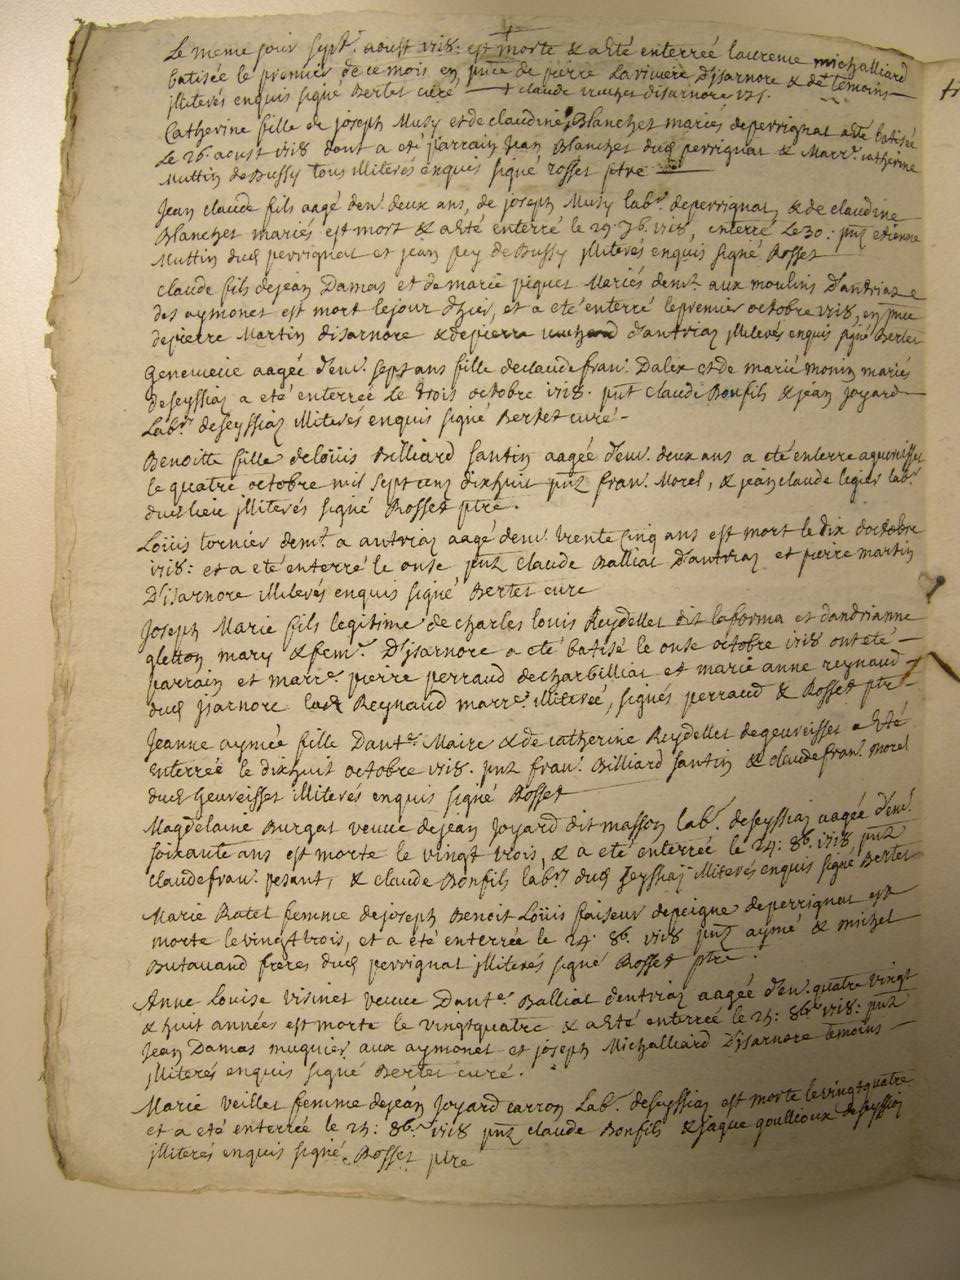 Le meme jour sept. aoust 1718: est morte & a été enterrée laurence michalliard
batisée le premier de ce mois en pnce de pierre Lariviere D'isarnore & de temoins
illiterés enquis signé Bertet curé claude disarnore
Catherine fille de joseph Musy et de claudine Blanchet mariés de perrignat a été batisée
Le 26. aoust 1718 dont a été parrain Jean Blanchet dud. perrignat & Marr.e catherine
Muttin de Bussy tous illiterés enquis signé Rosset ptre
Jean claude fils aagé denv. deux ans, de joseph Musy lab.r de perrignat & de claudine
Blanchet mariés est mort & a été enterré le 29. 7b. 1718, enterré Le 30: pnt etienne
Muttin dud. perrignat et jean pey de Bussy illiterés enquis signé Rosset
claude fils de jean Damas et de marie piquet Mariés dem.t aux moulins D'antriaz
des aymonet est mort le jour d'hier, et a été enterré le premier octobre 1718, en pnce
de pierre Martin disarnore & de pierre d'antriaz illiterés enquis signé Bertet
Genevieve aagée d'env. sept ans fille de claude fran. Dalex et de marie monin mariés
de seyssiaz a été enterrée Le trois octobre 1718. pnt claude Bonfils & jean joyard
Lab.rs de seyssiaz illiterés enquis signé Bertet curé
Benoitte fille de loüis Billiard santin aagée d'env. deux ans a été enterrée a gevreisset
le quatre octobre mil sept cens dixhuit pnt fran. Morel, & jean claude legier lab.rs
dud. lieu illiterés signé Rosset ptre.
Loüis tornier dem.t a antriaz aagé denv. trente cinq ans est mort le dix d'octobre
1718: et a été enterré le onse pnt claude Balliat D'antriaz et pierre martin
D'isarnore illiterés enquis signé Bertet curé
Joseph Marie fils legitime de charles louis Reydellet dit laforma et d'andrianne
gletton mary & fem. D'isarnore a été batisé le onse octobre 1718 ont été
parrain et marr.e pierre perraud de charbilliat et marie anne reynaud
dud. isarnore lad. Reynaud marr.e illiterée, signés perraud & Rosset ptre
Jeanne aymée fille D'ant.e Maire & de catherine Reydellet de gevreisset a été
enterrée le dixhuit octobre 1718. pnt fran. Billiard santin & claude fran. morel
dud. Gevreisset illiterés enquis signé Rosset
Magdelaine Burgat veuve de jean Joyard dit masson lab.r de seyssiaz aagée d'env.
soixante ans est morte le vingt trois, & a été enterrée le 24: 8b. 1718, pnt
claude fran. pesant, & claude Bonfils lab.rs dud. seyssiaz illiterés enquis signé Bertet
Marie Ratel femme de joseph Benoit Loüis faiseur de peigne de perrignat est
morte le vingt trois, et a été enterrée le 24. 8b. 1718 pnt aymé & michel
Butavand freres dud. perrignat illiterés signé Rosset ptre.
Anne Louise visinet veuve D'ant.e Balliat d'entriaz aagée d'env. quatre vingt
& huit années est morte le vingt quatre & a été enterrée le 25: 8b.re 1718: pnt
Jean Damas mugnier aux aymonet et joseph Michalliard D'isarnore temoins
illiterés enquis signé Bertet curé.
Marie veillet femme de jean Joyard carron Lab.r de seyssiaz est morte le vingt quatre
et a été enterrée le 25: 8b.re 1718 pnt claude Bonfils & jaque goullioux de seyssiaz
illiterés enquis signé Rosset ptre